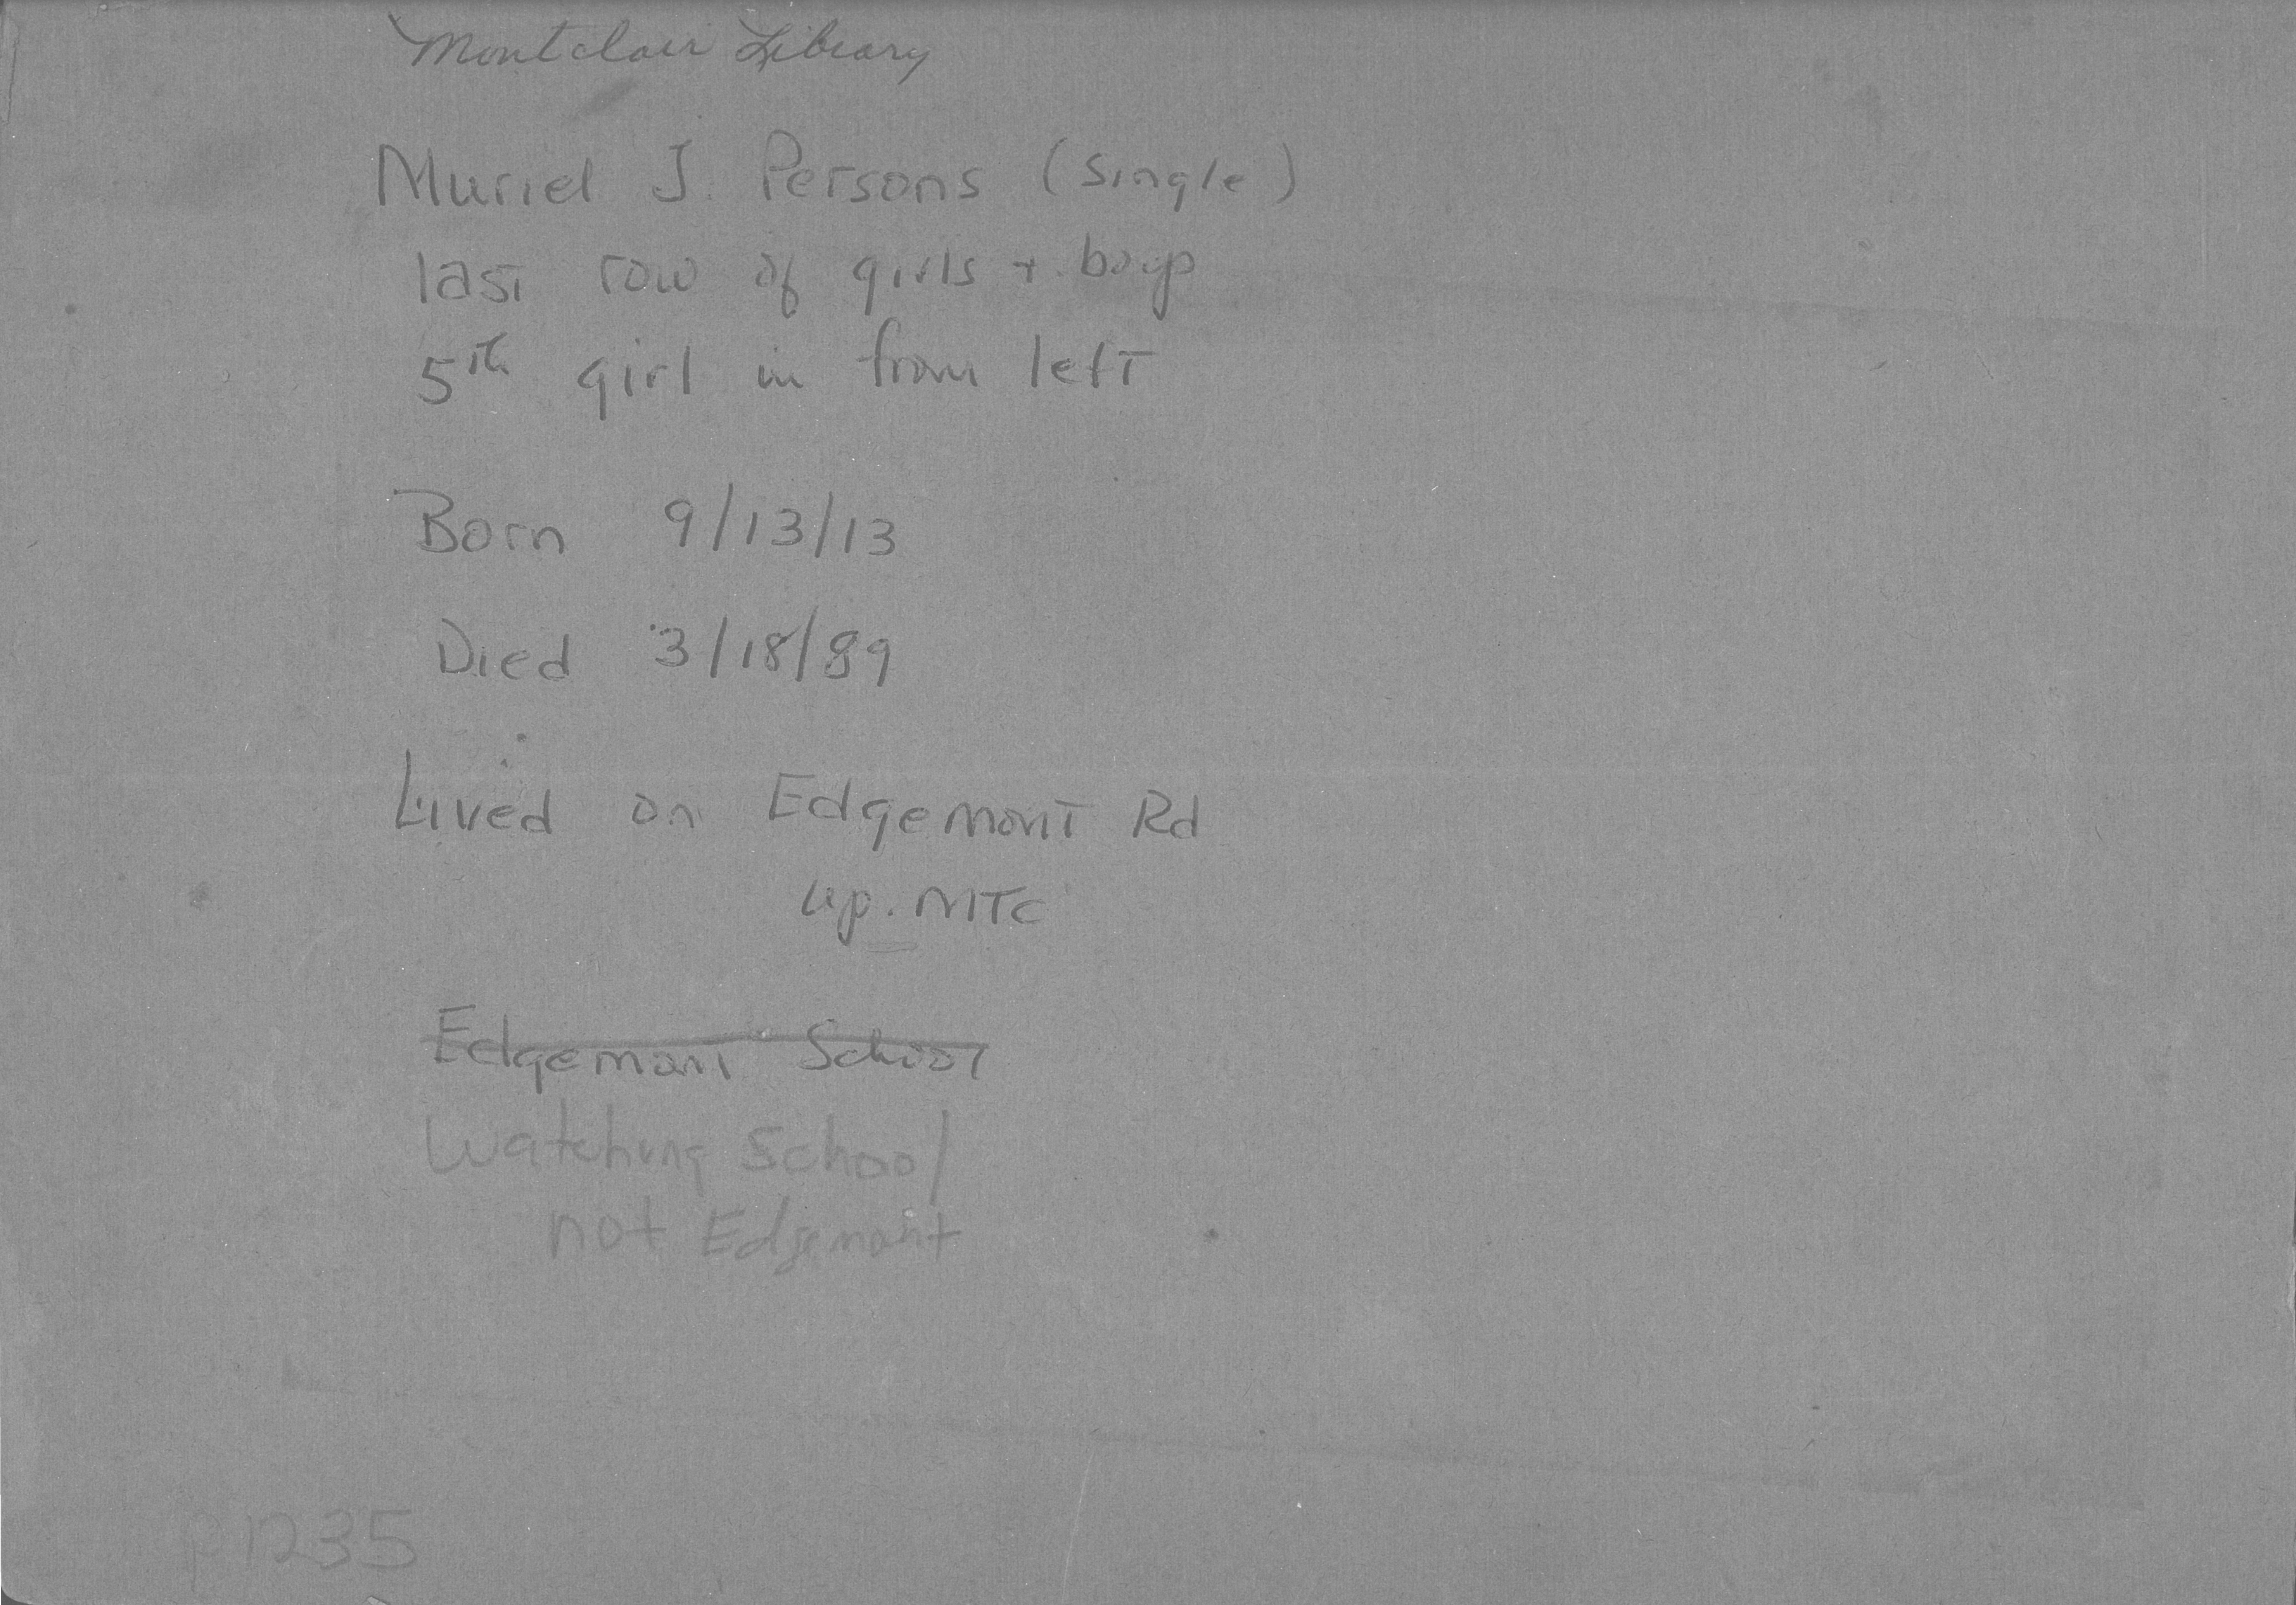 Montclair Library
Muriel J. Persons (single)
last row of girls + boys
5th girl in from left
Born 9/13/13
Died 3/18/89
Lived on Edgemont Rd
up. MTC
Edgemont School
Watchung School
not Edgemont
p1235